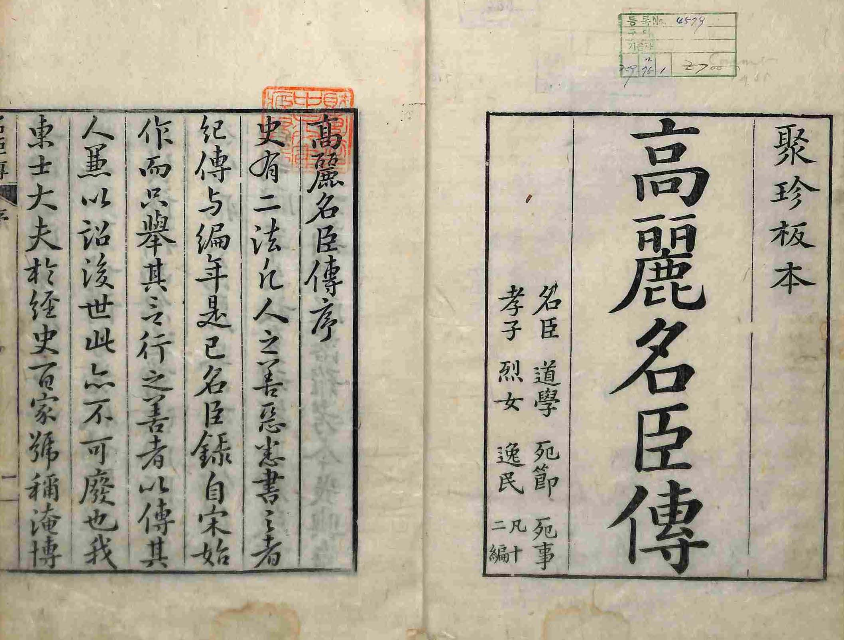 聚珍板本
高麗名臣傳
名臣 道學 死節 死事
孝子 烈女 逸民 凡十
二編
등록No. 4579
高麗名臣傳序
史有二法凡人之善惡悉書之者
紀傳与編年是已名臣錄自宋始
作而只擧其言行之善者以傳其
人並以詔後世此亦不可廢也我
東士大夫於經史百家號稱淹博